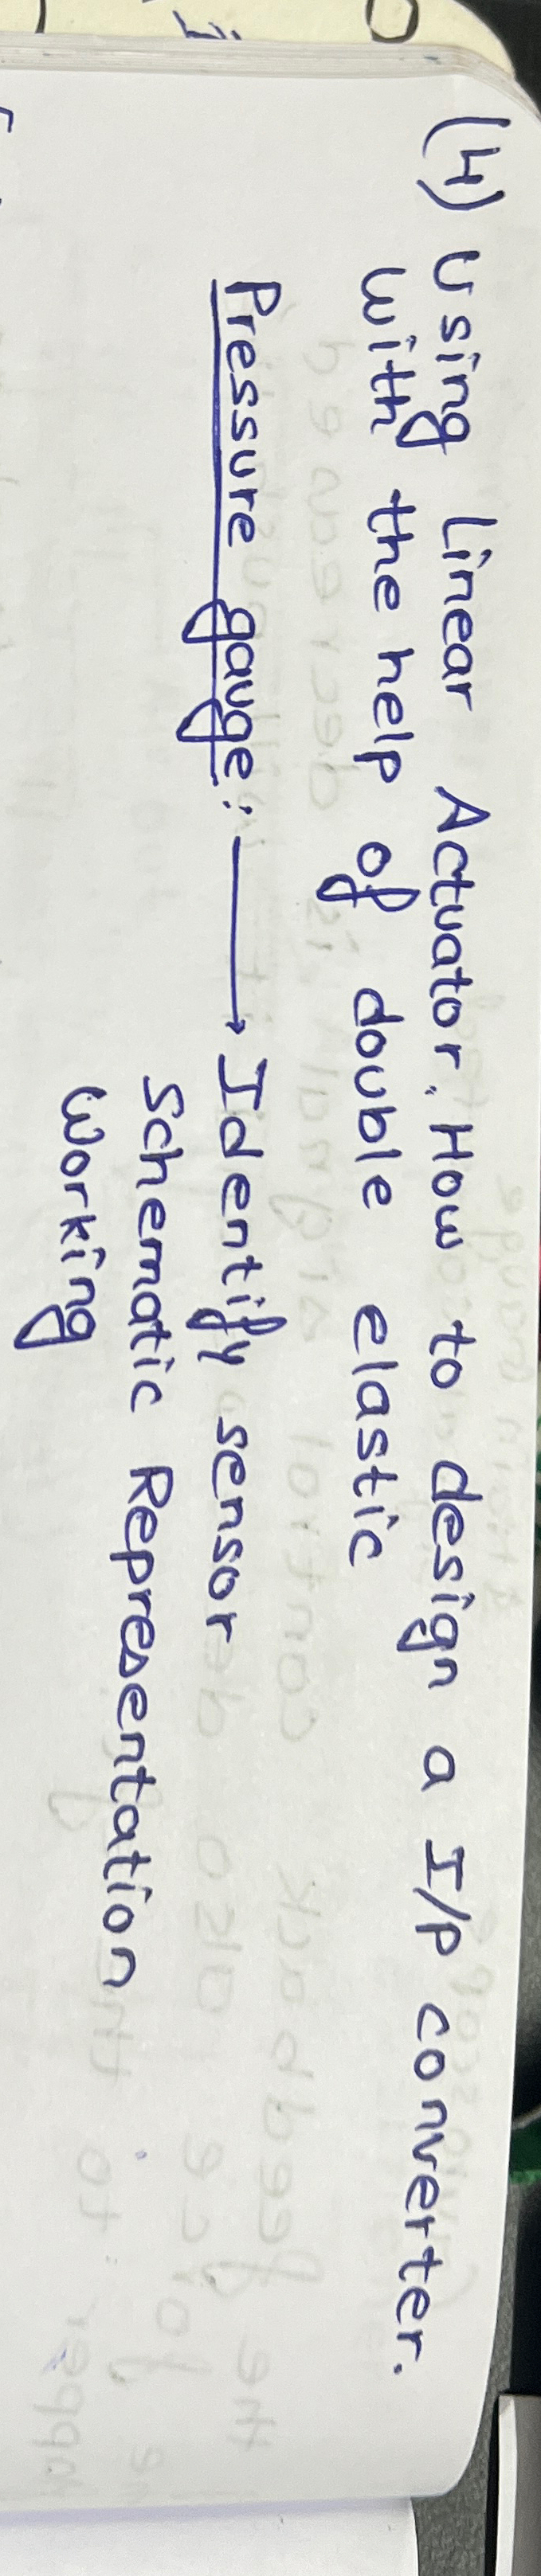 (4) Using Linear Actuator. How to design a I/P converter.
with the help of double elastic
Pressure gauge: → Identify sensor
Schematic Representation
Working